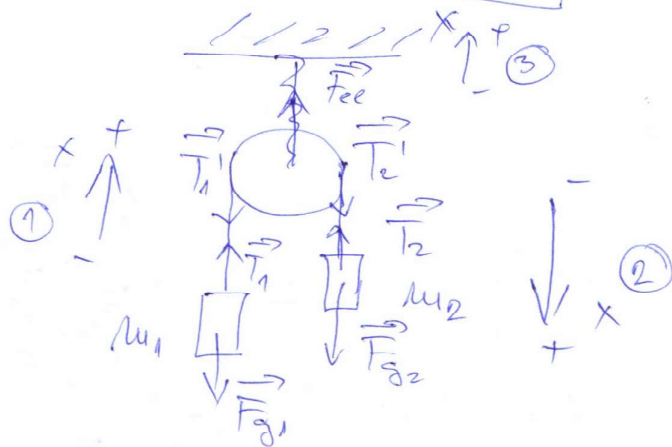 x + - ③
F⃗el
x + - ①
T⃗₁' T⃗₂'
T⃗₁ T⃗₂
- + x ②
m₁ m₂
F⃗g₁ F⃗g₂